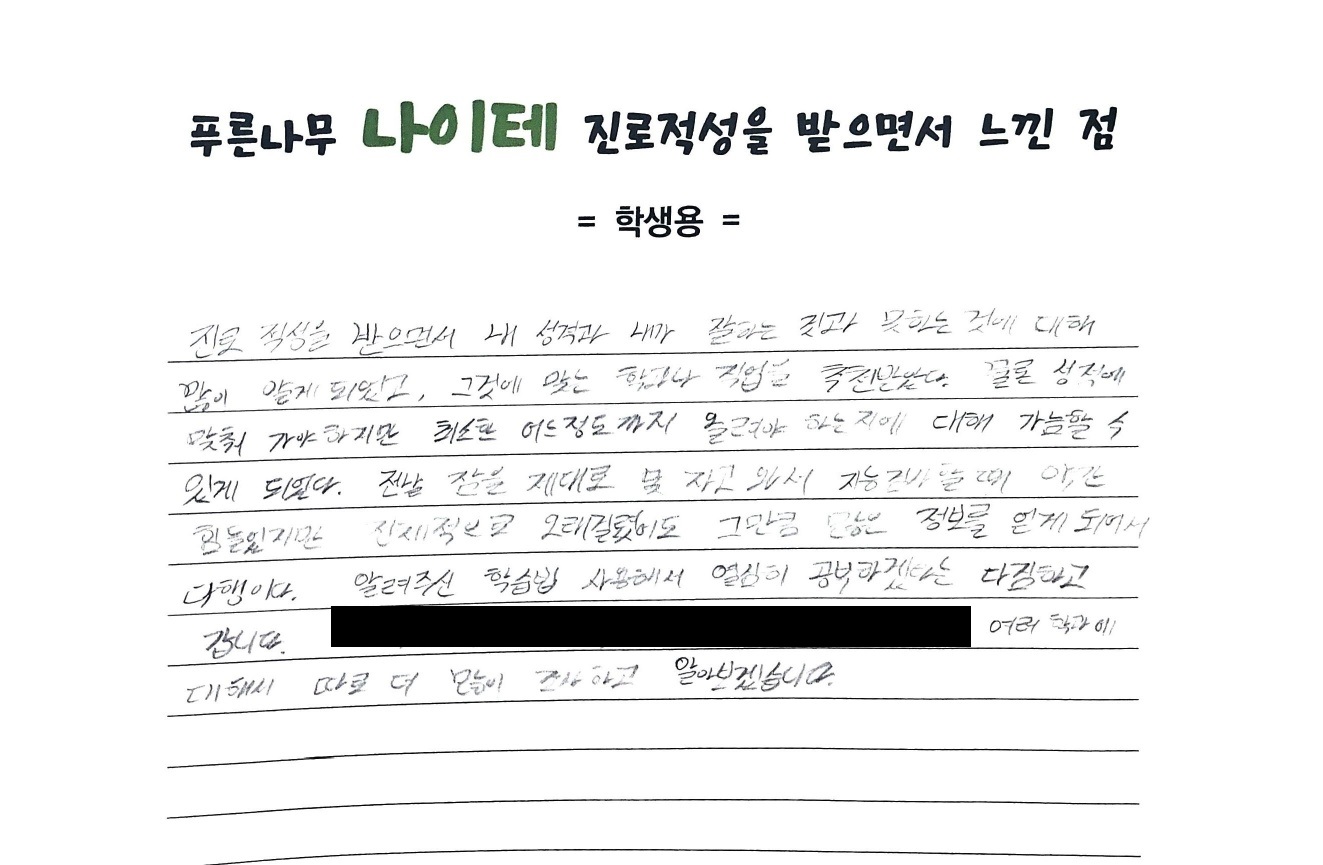 푸른나무 나이테 진로적성을 받으면서 느낀 점
= 학생용 =
진로 적성을 받으면서 내 성격과 내가 잘하는 것과 못하는 것에 대해
많이 알게 되었고, 그것에 맞는 학과나 직업을 추천받았다. 물론 성적에
맞춰 가야 하지만 최소한 어느정도까지 올려야 하는지에 대해 가늠할 수
있게 되었다. 전날 잠을 제대로 못 자고 와서 지능검사할 때 약간
힘들었지만 전체적으로 오래걸렸어도 그만큼 많은 정보를 얻게 되어서
다행이다. 알려주신 학습법 사용해서 열심히 공부하겠다는 다짐하고
갑니다. 여러 학과에
대해서 따로 더 많이 조사하고 알아보겠습니다.